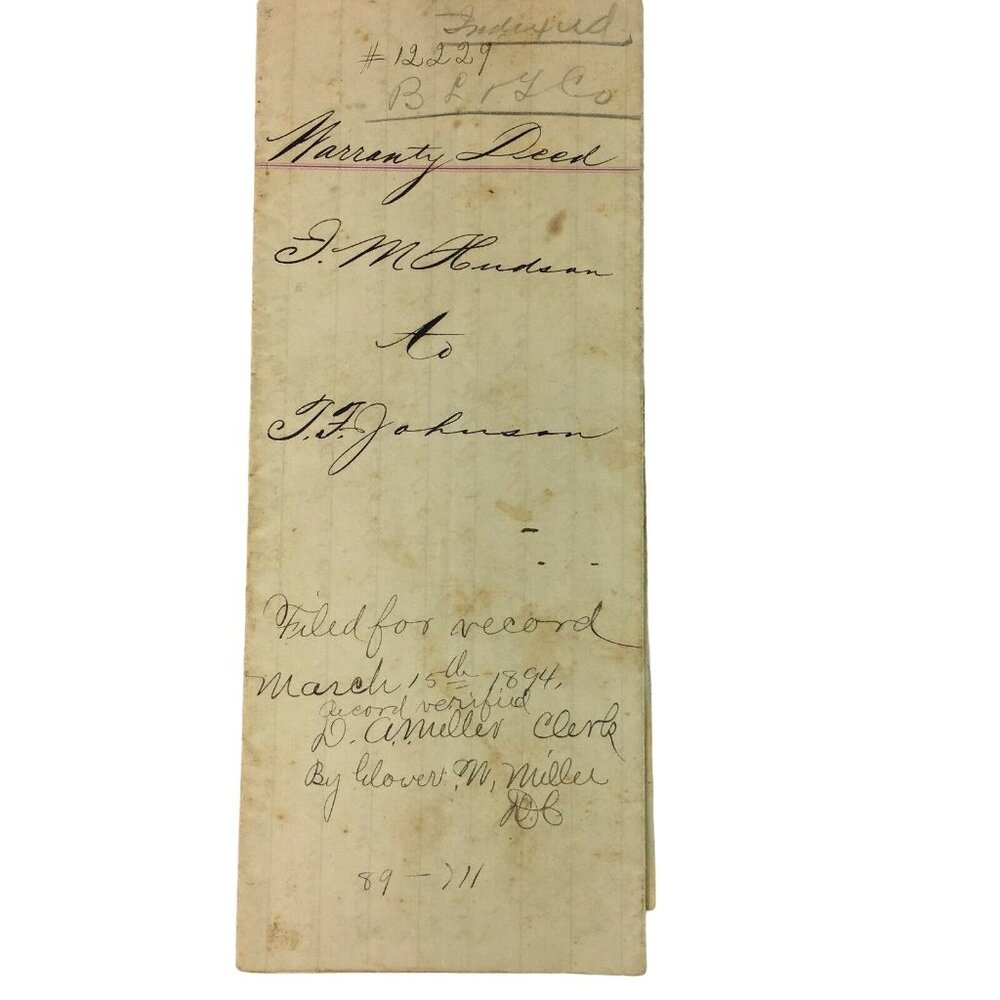 Indexed
#12229
B L & G Co
Warranty Deed
J. M Hudson
to
T. F. Johnson
Filed for record
March 15th 1894.
Record verified
D. A. Miller Clerk
By Glover W, Miller
D.C
89 - 711